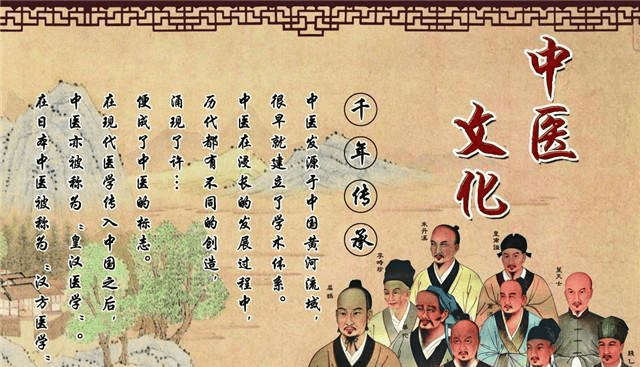 中医
文化
千年传承
中医发源于中国黄河流域,
很早就建立了学术体系。
中医在漫长的发展过程中,
历代都有不同的创造,
涌现了许…
便成了中医的标志。
在现代医学传入中国之后,
中医亦被称为"皇汉医学"。
在日本中医被称为"汉方医学"
葉天士
皇甫謐
朱丹溪
李時珍
扁鵲
錢乙